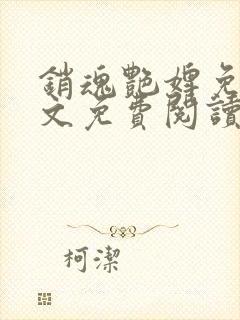 銷魂艷婢免
文免費閱讀
柯潔